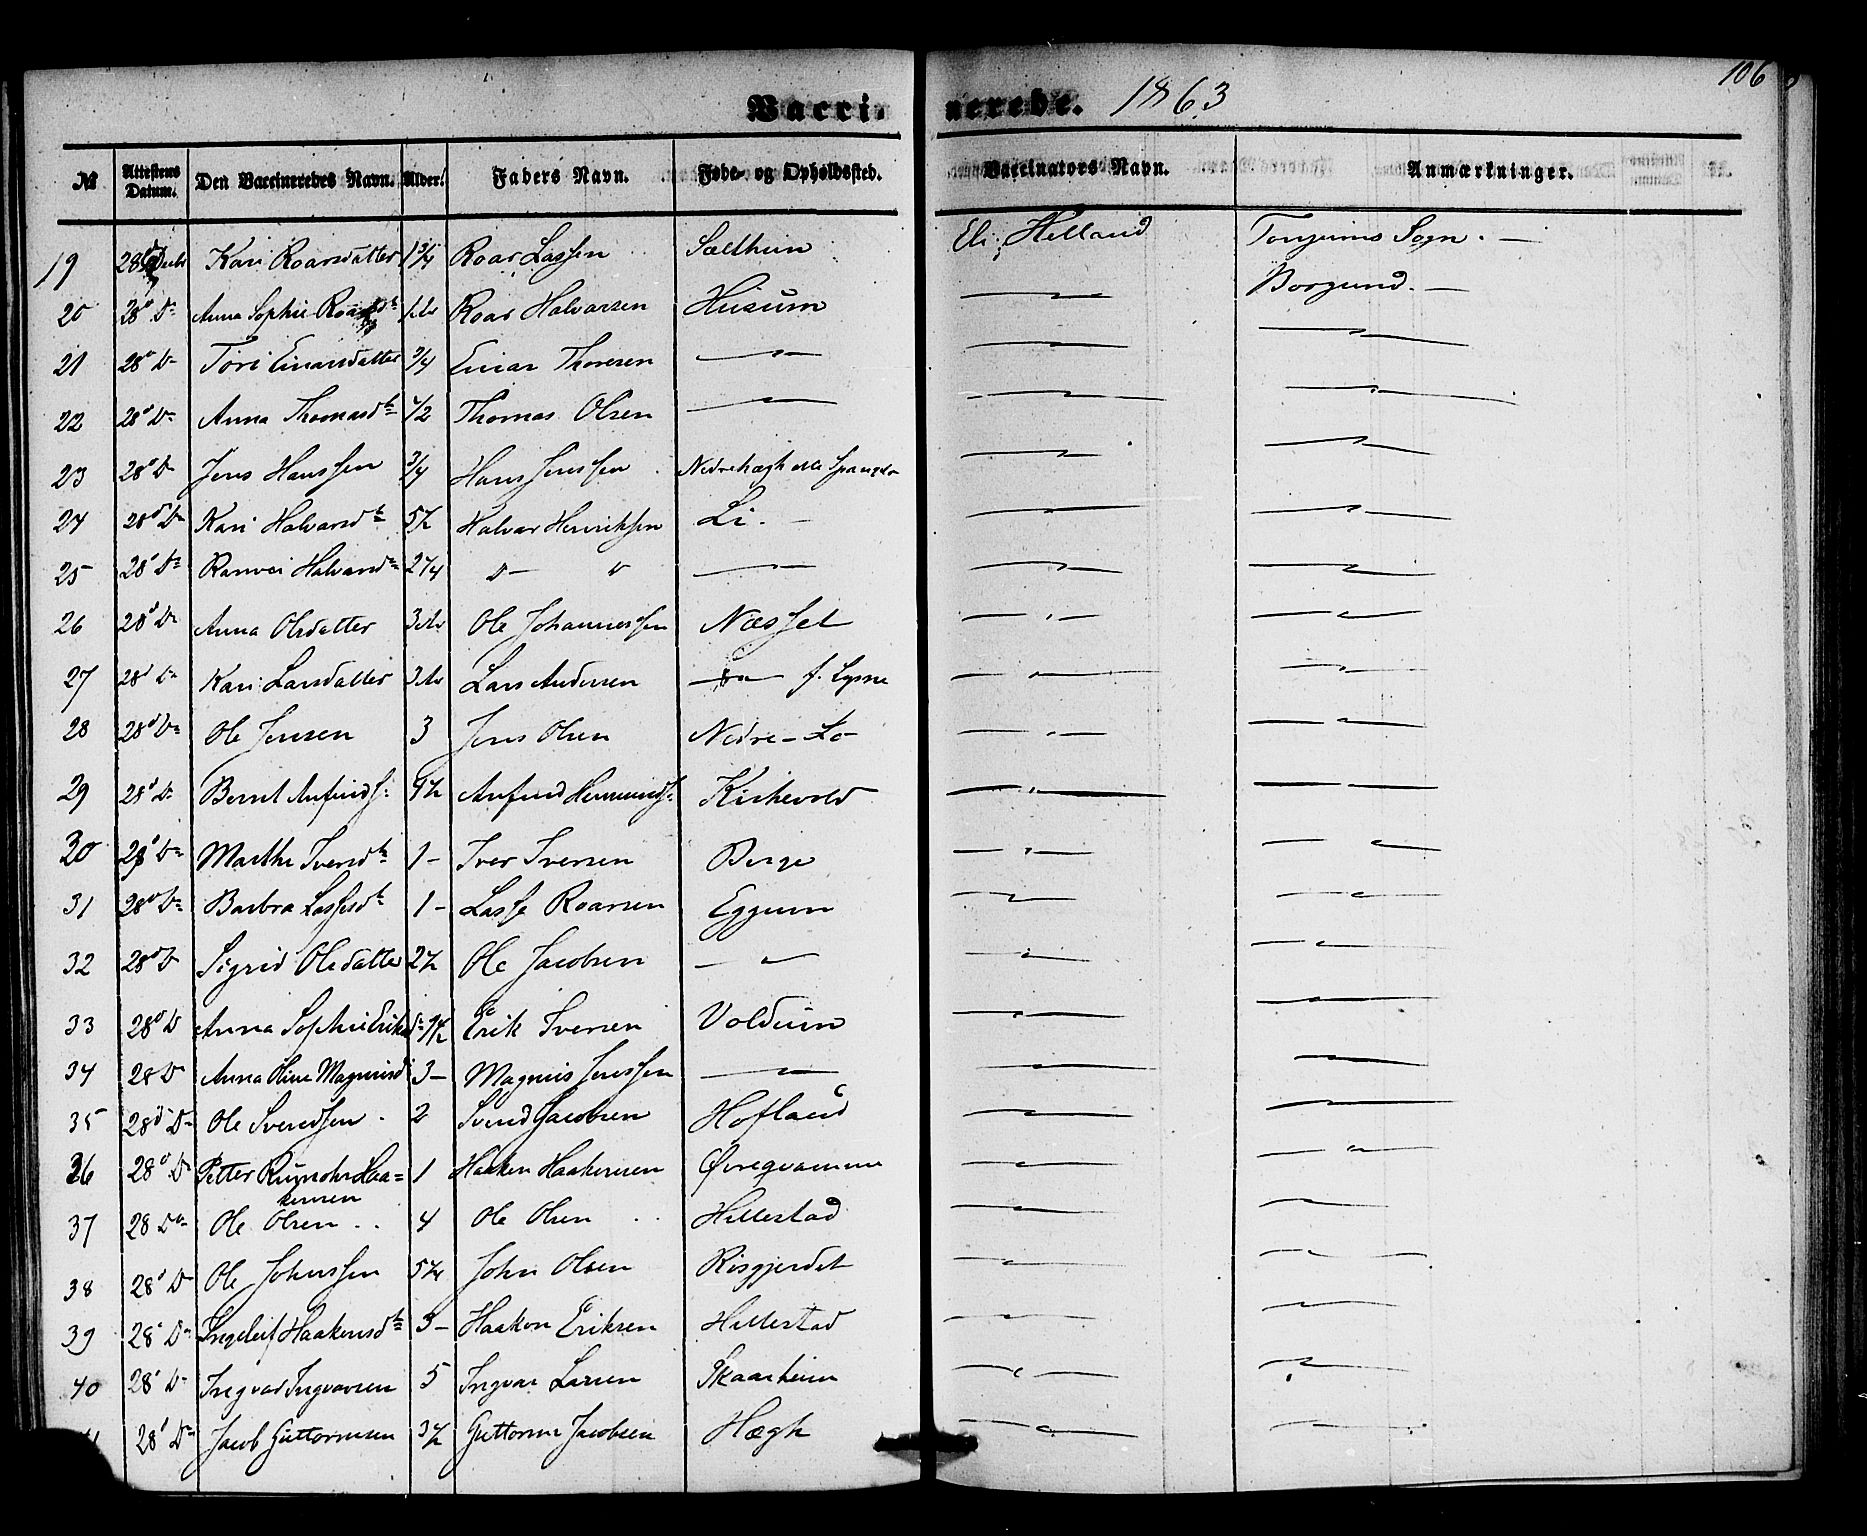 106
Vacci- nerede. 1863
№ Attestens Datum. Den Vaccineredes Navn. Alder. Faders Navn. Føde- og Opholdssted. Vaccinators Navn. Anmærkninger.
19 28 Decbr Kari Roarsdatter 1 3/4 Roar Lassen Sælthun Eli Helland Tonjums Sogn. —
20 28d Do Anna Sophie Roarsdtr Roar Halvarsen Husum — Borgund. —
21 28d Do Tori Einarsdatter 3/4 Einar Thoresen — — —
22 28d Do Anna Thomasdtr 1/2 Thomas Olsen — — —
23 28d Do Jens Hanssen 3/4 Hans Jenssen Nedrehægh — —
24 28d Do Kari Halvarsdtr 5 1/2 Halvar Henriksen Li. — — —
25 28d Do Ranvei Halvarsdtr 2 1/4 D — " — — —
26 28d Do Anna Olsdatter 3 Ole Johannessen Næsset — —
27 28d Do Kari Larsdatter 3 Lars Andersen — f. Lysne — —
28 28d Do Ole Jensen 3 Jens Olsen Nedre-Lo — —
29 28d Do Bernt Anfinds: 9 1/2 Anfind Hermunds: Kirkevold — —
30 28d Do Marthe Iversdtr 1 — Iver Iversen Berge — —
31 28d Do Barbra Lassesdtr 1 — Lasse Roarsen Eggum — —
32 28d D Sigrid Olsdatter 2 1/2 Ole Jacobsen — — —
33 28d D Anna Sophie Eriksd 9 1/2 Erik Iversen Voldum — —
34 28 D Anna Oline Magnusd 3 — Magnus Jenssen — — —
35 28d Do Ole Svendsen. 2 Svend Jacobsen Hofland — —
36 28d Do Petter Haa= 1 Haaken Haakensen Øvreqvamme — —
kensen
37 28 Do Ole Olsen.. 4 Ole Olsen.. Hillestad — —
38 28d D Ole Johnssen 5 1/4 John Olsen Risgjerdet — —
39 28d Do Ingeleif Haakensdtr 3 — Haakon Eriksen Hillestad — —
40 28d D Ingvar Ingvarsen 5 Ingvar Larsen Skaarheim — —
28d Do Jacob Guttormsen 3 1/2 Guttorm Jacobsen Hægh — —